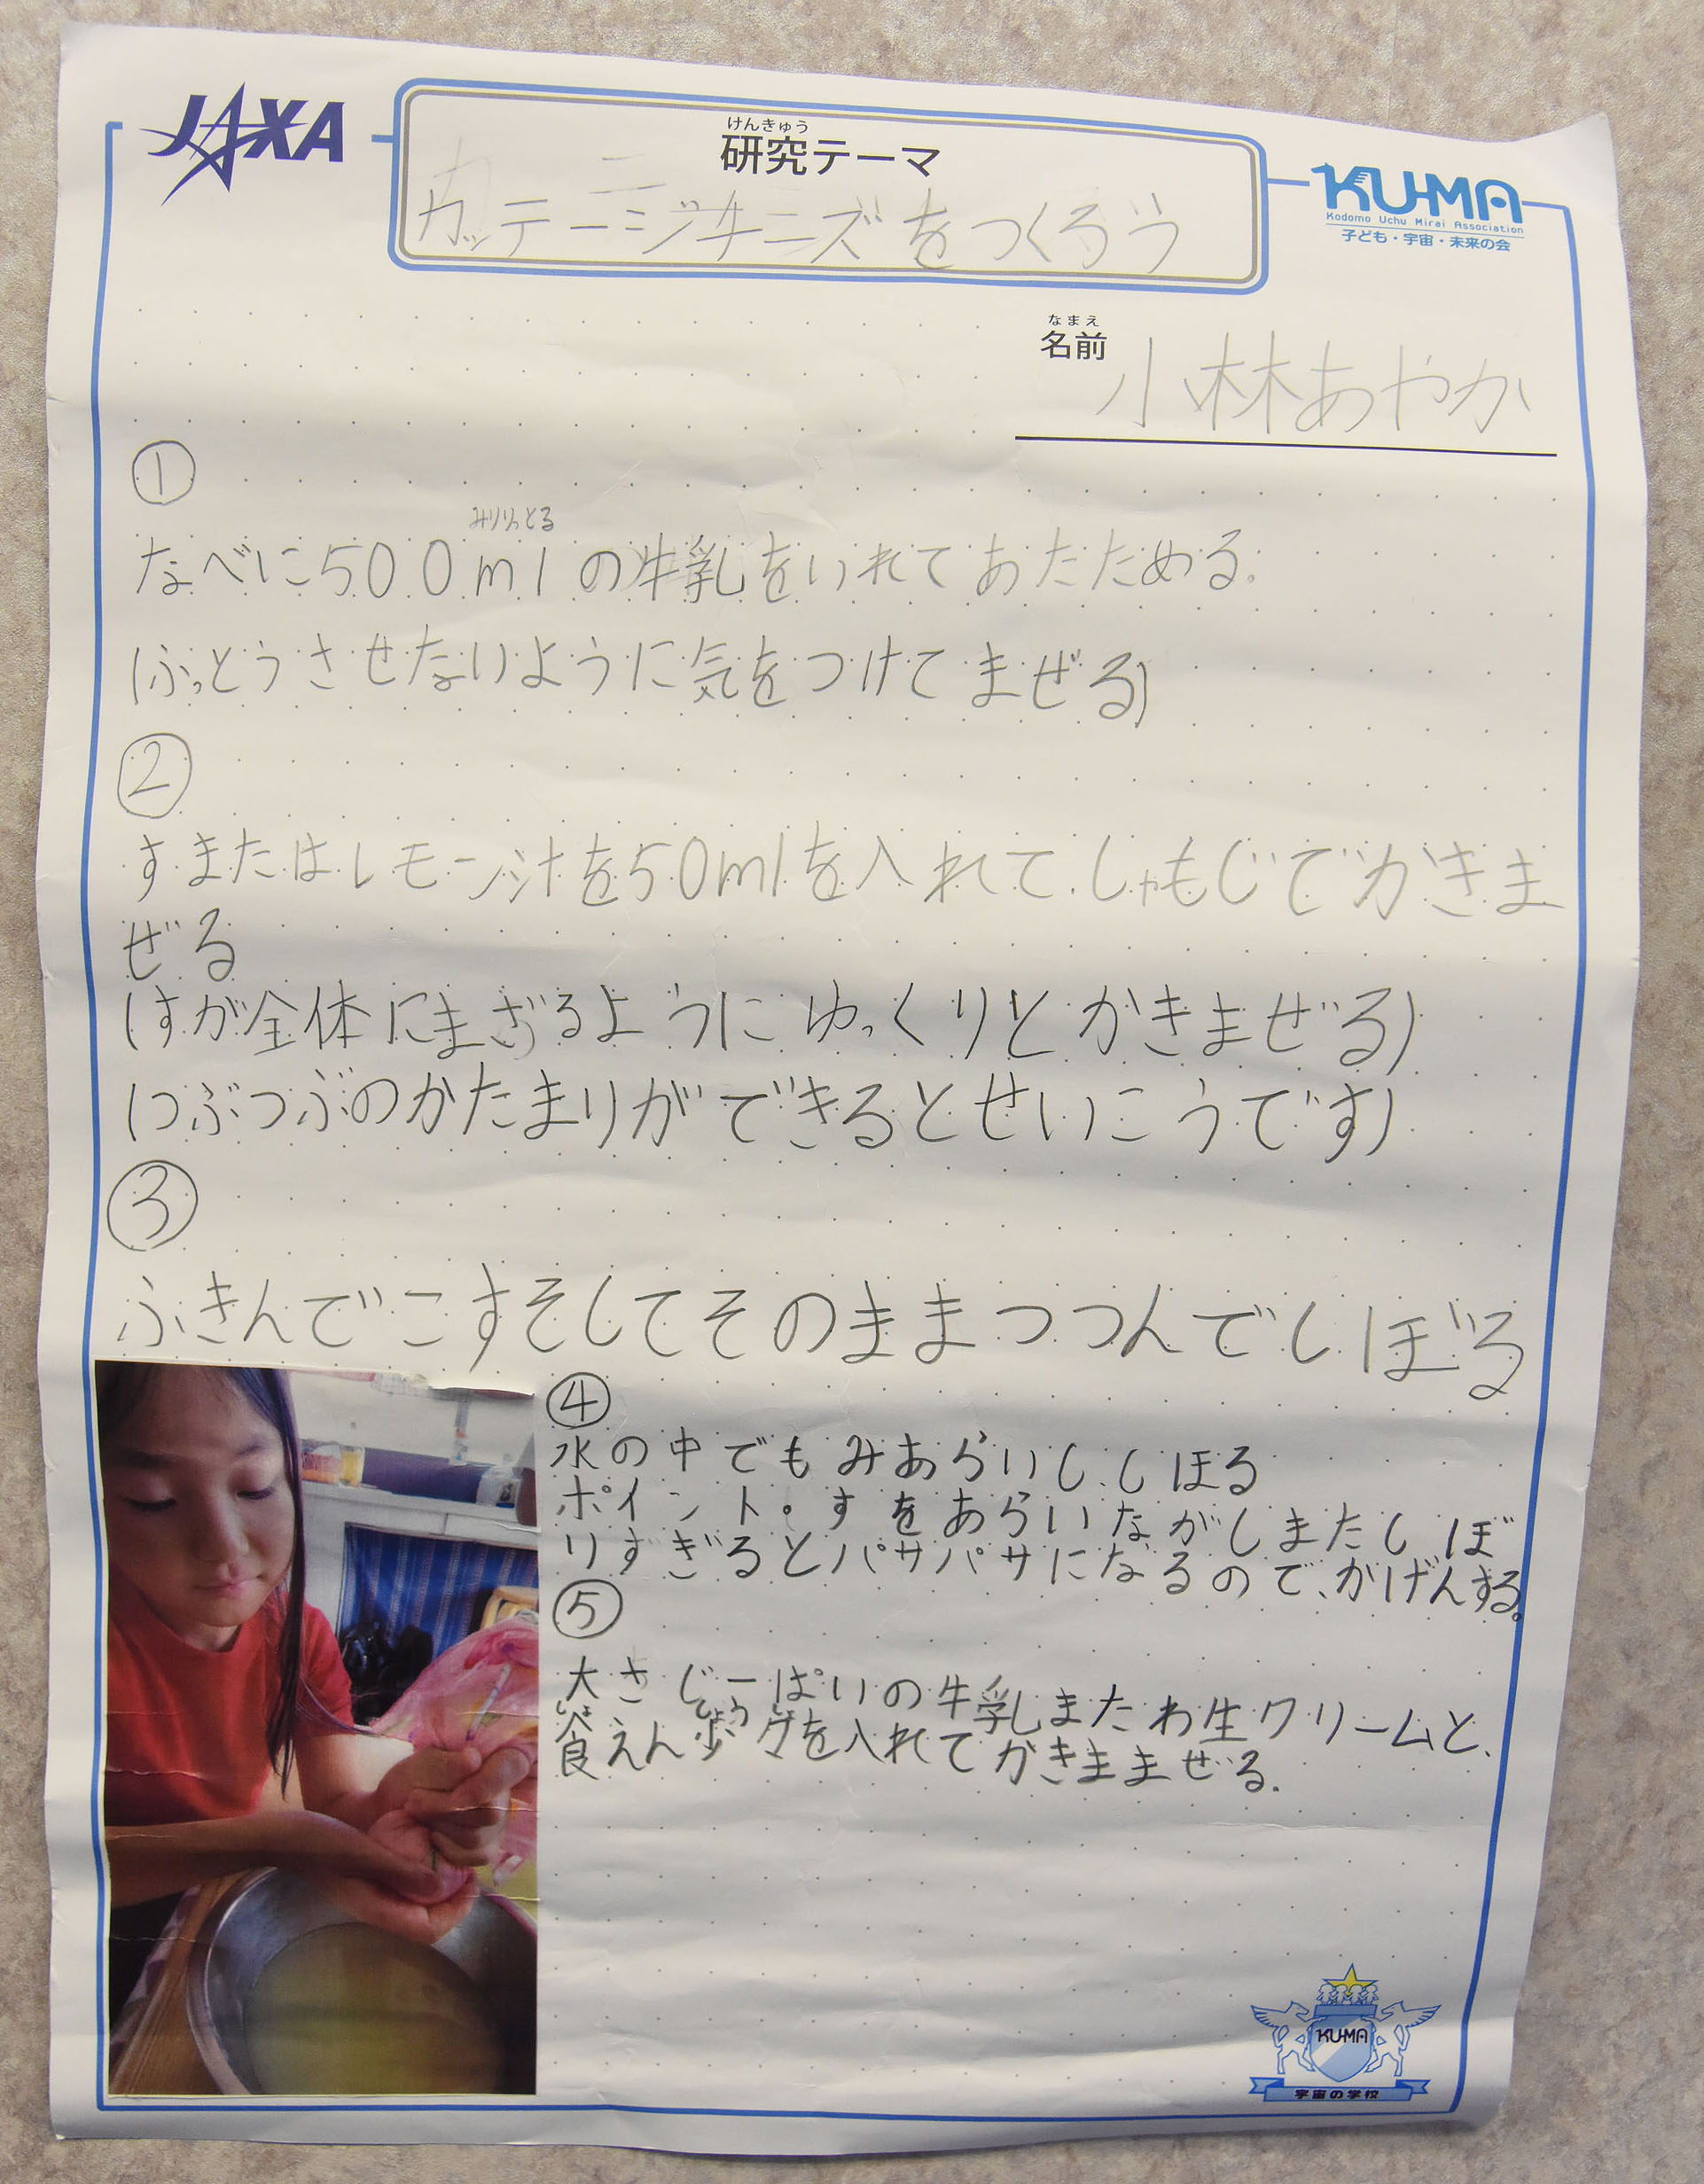 JAXA
けんきゅう
研究テーマ
カッテージチーズをつくろう
KU-MA
Kodomo Uchu Mirai Association
子ども・宇宙・未来の会
なまえ
名前 小林あやか
①
みりりっとる
なべに500mlの牛乳をいれてあたためる。
(ふっとうさせないように気をつけてまぜる)
②
すまたはレモン汁を50mlを入れて、しゃもじでかきま
ぜる
(すが全体にまざるようにゆっくりとかきまぜる)
(つぶつぶのかたまりができるとせいこうです)
③
ふきんでこすそしてそのままつつんでしぼる
④
水の中でもみあらいし、しほる
ポイント。すをあらいながしまたしぼ
りすぎるとパサパサになるので、かげんする。
⑤
大さじーぱいの牛乳またわ生クリームと、
しょ しょう しょ
食えん少々を入れてかきまませる.
KU-MA
宇宙の学校